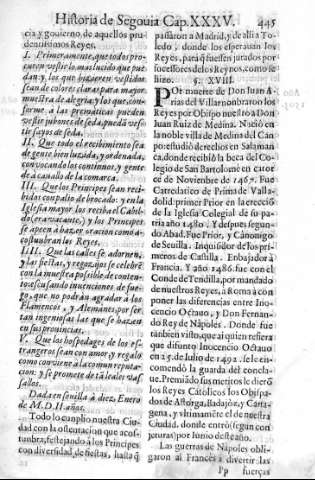 Historia de Segouia Cap. XXXV. 445
cia y gouierno, de aquellos pru
dentissimos Reyes.
I. Primeramente, que todos pro
curen vestir lo mas lucido que pue
dan, y los que hizieren vestidos
sean de colores claras para mayor
muestra de alegria, y los que, con-
forme a las prematicas pueden
vestir jubones de seda, pueda ves-
tir sayos de seda.
II. Que todo el recibimiento sea
de gente bien luzida, y ordenada,
conuocando los contornos, y gente
de à cauallo de la comarca.
III. Que los Principes sean rici-
bidos con palio de brocado: y en la
Iglesia mayor los reciba el Cabil-
do (era vacante,) y los Principes
se apeen à bazer oracion como a-
costunbran los Reyes.
IIII. Que las calles se adornen,
y las fiestas, y regozijos se celebrē
con la muestra posible de conten-
to: escusando inuenciones de fue-
go, que no podràn agradar à los
Flamencos, y Alemanes, por ser
tan ingeniosas las que se hazen
en sus prouincias.
V. Que los hospedages de los es-
trangeros sean con amor y regalo
como conuiene à la comun reputa-
cion: y se promete de tà leales va-
sallos.
Dada en seuilla à diez, Enero
de M.D.II. años.
Todo lo cunplio nuestra Ciu
dad con la ostentacion que acos-
tunbra, festejando à los Principes
con diuersidad de fiestas, hasta q̄
passaron a Madrid, y de alli a To
ledo, donde los esperauan los
Reyes, para q̄ fuessen jurados por
sucessores de los Reynos, como se
hizo. §. XVIII.
POr muerte de Don Iuan A-
rias del Villar nonbraron los
Reyes por Obispo nuestro a Don
Iuan Ruiz de Medina. Naciò en
la noble villa de Medina del Can
po: estudiò derechos en Salaman
ca, donde recibiò la beca del Co-
legio de San Bartolome en cator
ce de Nouienbre de 1467. Fue
Catredatico de Prima de Valla-
dolid: primer Prior en la erecciõ
de la Iglesia Colegial de su pa-
tria año 1480. Y despues segun-
do Abad. Fue Prior, y Cànonigo
de Seuilla. Inquisidor de los pri-
meros de Castilla. Enbajador à
Francia. Y año 1486. fue con el
Conde de Tendilla, por mandado
de nuestros Reyes, à Roma à con
poner las diferencias entre Ino-
cencio Octauo, y Don Fernan-
do Rey de Nàpoles. Donde fue
tanbien visto, que al quien refiera
que difunto Inocencio Octauo
en 25. de Iulio de 1492. se le en-
comendò la guarda del concla-
ue. Premiàdo sus meritos le dierõ
los Reyes Catolicos los Obispa-
dos de Astorga, Badajòz, y Carta-
gena, y vltimamēte el de nuestra
Ciudad, donde entrò (segun con
jeturas) por Iunio deste año.
Las guerras de Nàpoles obli-
garon al Francès a diuertir las
Pp fuerças